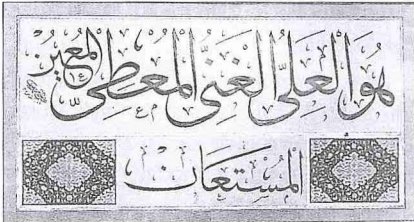 هُوَ العَلِيُّ الغَنِيُّ المُعْطِي المُعِينُ
المُسْتَعَانُ